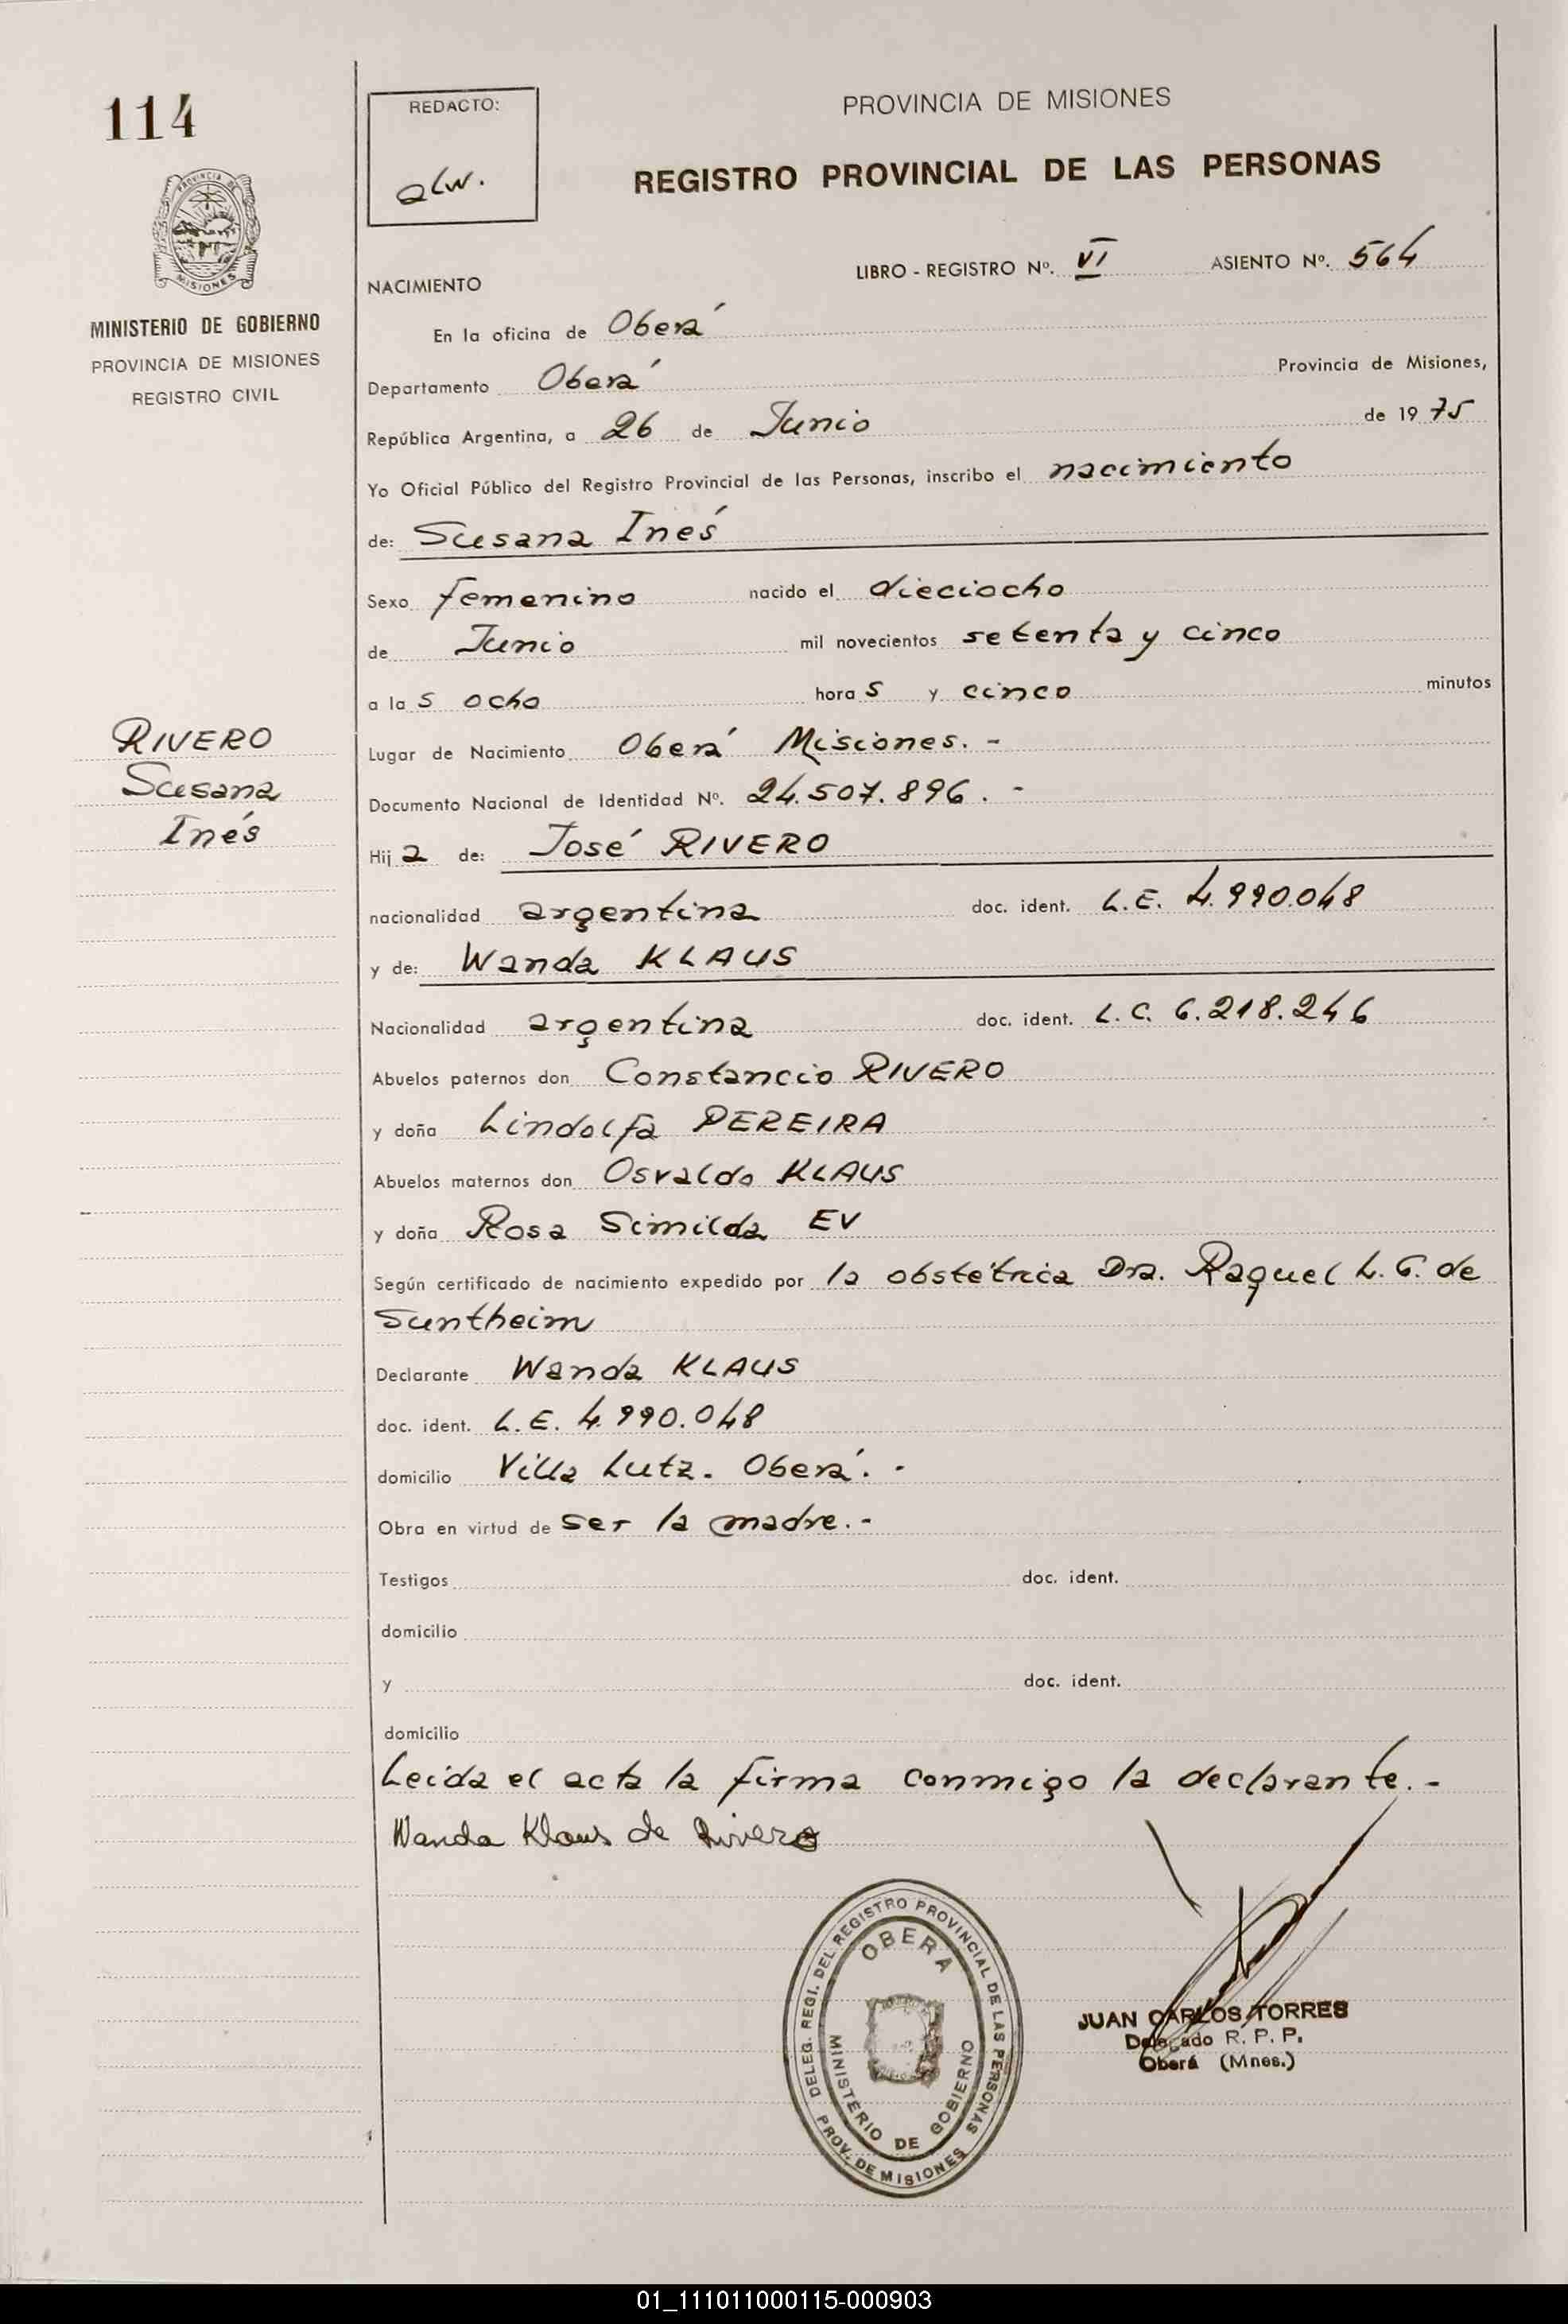 114
PROVINCIA DE
MISIONES
MINISTERIO DE GOBIERNO
PROVINCIA DE MISIONES
REGISTRO CIVIL
RIVERO
Susana
Inés
REDACTO:
PROVINCIA DE MISIONES
REGISTRO PROVINCIAL DE LAS PERSONAS
LIBRO - REGISTRO Nº. VI ASIENTO Nº. 564
NACIMIENTO
En la oficina de Oberá
Departamento Oberá Provincia de Misiones,
República Argentina, a 26 de Junio de 19 75
Yo Oficial Público del Registro Provincial de las Personas, inscribo el nacimiento
de: Susana Inés
Sexo femenino nacido el dieciocho
de Junio mil novecientos setenta y cinco
a la s ocho hora s y cinco minutos
Lugar de Nacimiento Oberá Misiones. -
Documento Nacional de Identidad Nº. 24.507.896. -
Hij a de: José RIVERO
nacionalidad argentina doc. ident. L.E. 4.990.048
y de: Wanda KLAUS
Nacionalidad argentina doc. ident. L.C. 6.218.246
Abuelos paternos don Constancio RIVERO
y doña Lindolfa PEREIRA
Abuelos maternos don Osvaldo KLAUS
y doña Rosa Similda EV
Según certificado de nacimiento expedido por la obstétrica Dra. Raquel L. G. de
Suntheim
Declarante Wanda KLAUS
doc. ident. L.E. 4.990.048
domicilio Villa Lutz. Oberá. -
Obra en virtud de ser la madre.-
Testigos doc. ident.
domicilio
y doc. ident.
domicilio
Leída el acta la firma conmigo la declarante.-
Wanda Klaus de Rivero
DELEG. REGI. DEL REGISTRO PROVINCIAL DE LAS PERSONAS
OBERA
MINISTERIO DE GOBIERNO
PROV. DE MISIONES
JUAN CARLOS TORRES
Delegado R. P. P.
Oberá (Mnes.)
01_111011000115-000903